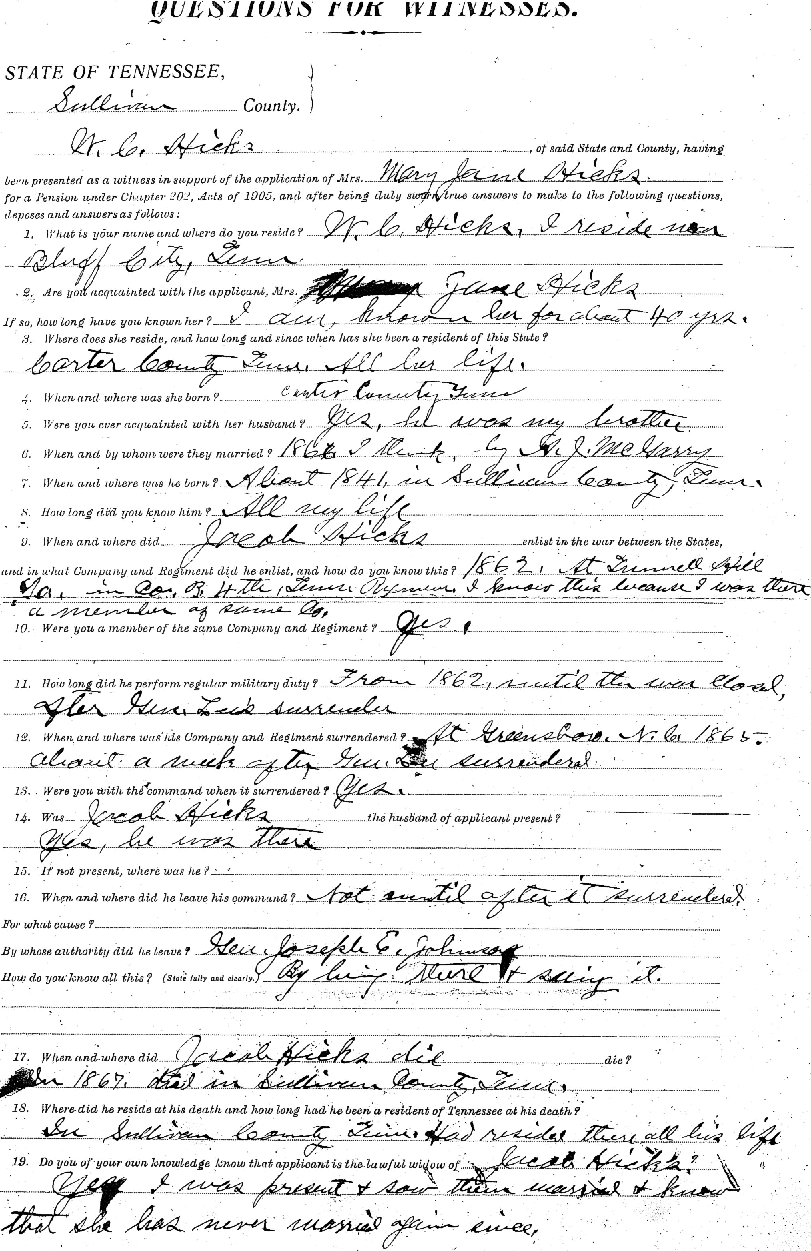 QUESTIONS FOR WITNESSES.
STATE OF TENNESSEE,
Sullivan County.
W. C. Hicks, of said State and County, having
been presented as a witness in support of the application of Mrs. Mary Jane Hicks
for a Pension under Chapter 202, Acts of 1905, and after being duly sworn true answers to make to the following questions,
deposes and answers as follows:
1. What is your name and where do you reside? W. C. Hicks, I reside near
Bluff City, Tenn.
2. Are you acquainted with the applicant, Mrs. Mary Jane Hicks
If so, how long have you known her? I am, known her for about 40 yrs.
3. Where does she reside, and how long and since when has she been a resident of this State?
Carter County Tenn. All her life.
4. When and where was she born? Carter County Tenn
5. Were you ever acquainted with her husband? Yes, he was my brother
6. When and by whom were they married? 1866 I think, by H. J. McGarry
7. When and where was he born? About 1841, in Sullivan County, Tenn.
8. How long did you know him? All my life
9. When and where did Jacob Hicks enlist in the war between the States,
and in what Company and Regiment did he enlist, and how do you know this? 1862. At Tunnell Hill
Ga. in Co. B. 4th, Tenn. Regiment, I know this because I was there
a member of same Co.
10. Were you a member of the same Company and Regiment? Yes.
11. How long did he perform regular military duty? From 1862, until the war closed,
after Gen. Lee's surrender
12. When and where was his Company and Regiment surrendered? At Greensboro, N. C. 1865.
about a week after Gen. Lee surrendered.
13. Were you with the command when it surrendered? Yes.
14. Was Jacob Hicks the husband of applicant present?
Yes, he was there
15. If not present, where was he?
16. When and where did he leave his command? Not until after it surrendered.
For what cause?
By whose authority did he leave? Gen. Joseph E. Johnson
How do you know all this? (State fully and clearly.) By being there & seeing it.
17. When and where did Jacob Hicks die die?
In 1867. Died in Sullivan County, Tenn.
18. Where did he reside at his death and how long had he been a resident of Tennessee at his death?
In Sullivan County Tenn. Had resided there all his life
19. Do you of your own knowledge know that applicant is the lawful widow of Jacob Hicks?
Yes I was present & saw them married & know
that she has never married again since.